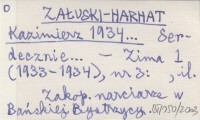 O
ZAŁUSKI-HARHAT
Kazimierz 1934... Ser-
decznie... – Zima 1
(1933-1934), nr 3: , il.
Zakop. narciarze w
Bańskiej Bystrzycy.